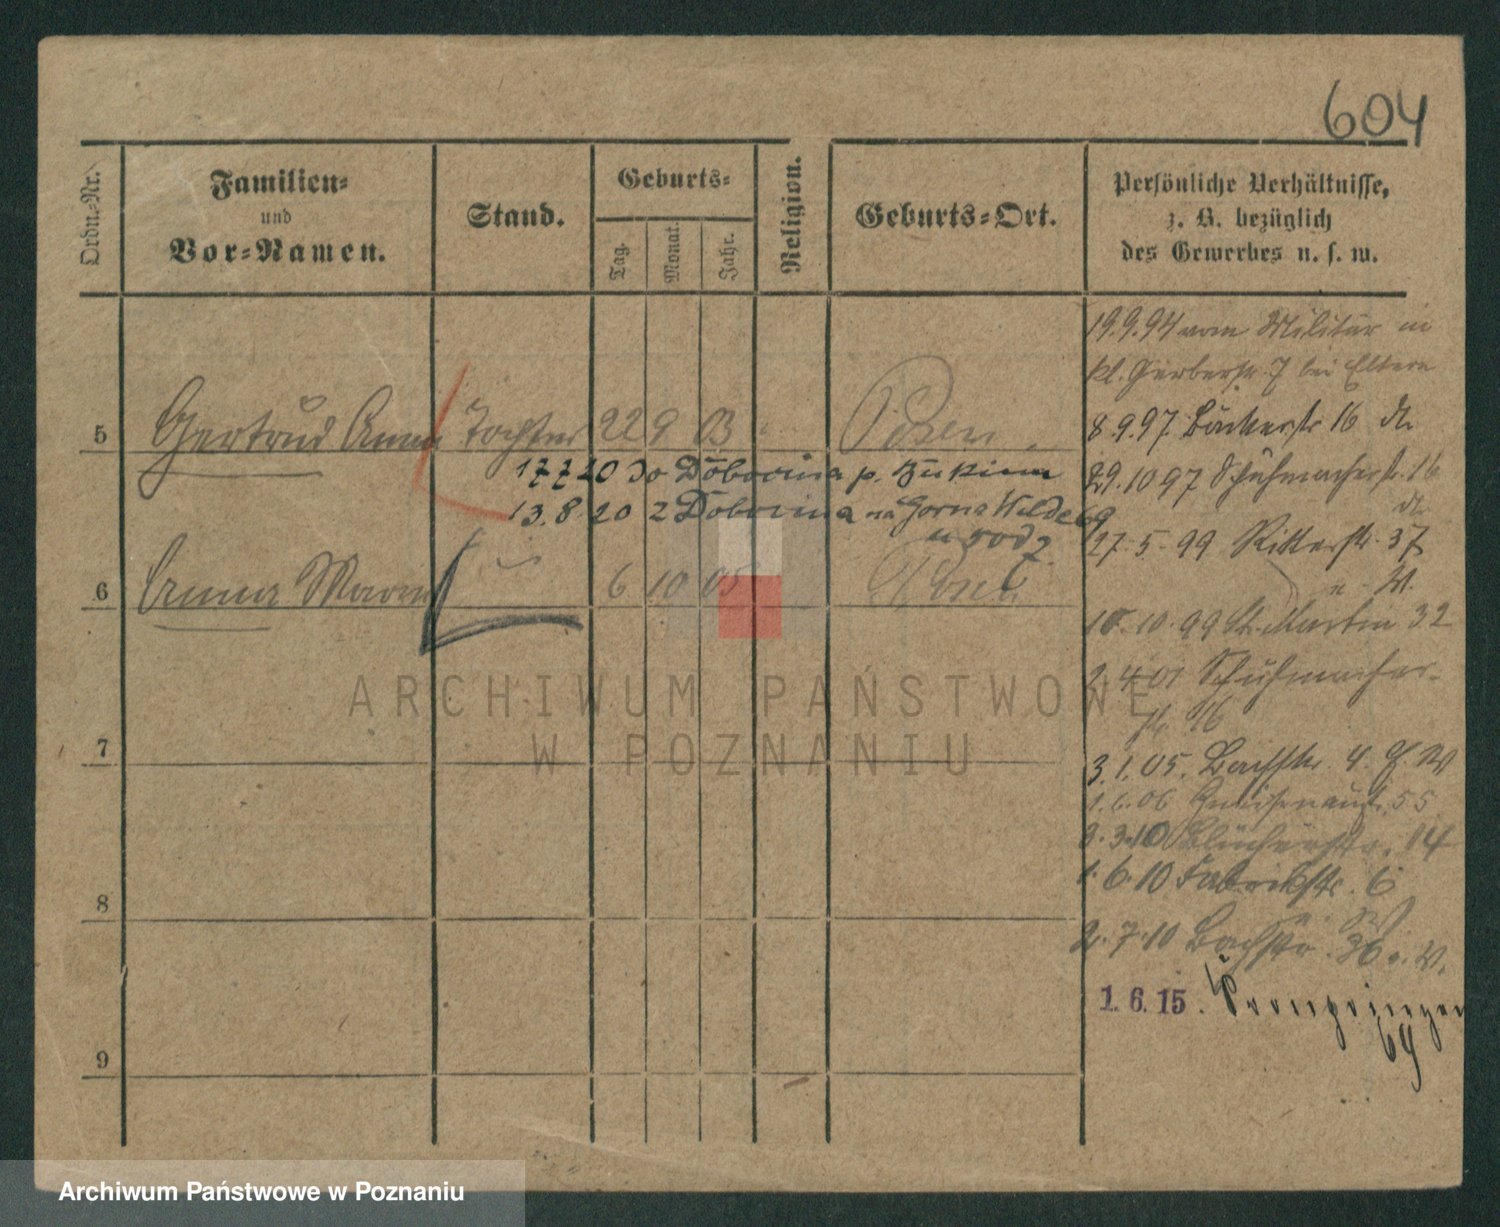 604
Ordn.-Nr.
Familien-
und
Vor-Namen.
Stand.
Geburts-
Tag.
Monat.
Jahr.
Religion.
Geburts-Ort.
Persönliche Verhältnisse,
z. B. bezüglich
des Gewerbes u. s. w.
19.9.94 vom Militär in
kl. Gerberstr. 7 bei Eltern
5 Gertrud Anna Tochter 22 9 03 Posen
8.9.97 Bäckerstr 16
17 7 20 do Dobrina p.
29.10 97 Schuhmacherstr. 16
13.8.20 z Dobrina na Gorna Wilde 69
27.5.99 Ritterstr. 37
u. W.
6 Anna 6 10 05 Posen
10.10.99 St. Martin 32
2.4.01 Schuhmacher-
str. 16
7
3.1.05. Bachstr. 4.
1.6.06 Gneisenaustr. 55
3.10 Blücherstr. 14
1.6.10 Fabrikstr. 6
8
2.7.10 Bachstr. 36
1.6.15. Kronprinzen
64
9
ARCHIWUM PAŃSTWOWE
W POZNANIU
Archiwum Państwowe w Poznaniu